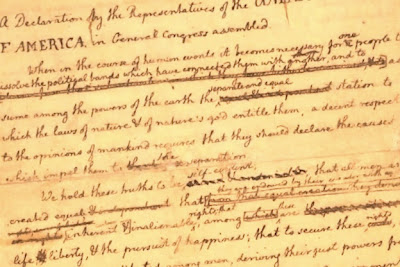 A Declaration by the Representatives of the
F AMERICA, in General Congress assembled.
When in the course of human events it becomes necessary for one people t
issolve the political bands which have connected them with another, and to
sume among the powers of the earth the separate and equal station to
which the laws of nature & of nature's god entitle them, a decent respect
to the opinions of mankind requires that they should declare the causes
which impel them to the separation.
We hold these truths to be self-evident; that all men ar
created equal that they are endowed by their
inherent & inalienable, among these are
life & liberty, & the pursuit of happiness; that to secure these rights
among men, deriving their just powers f